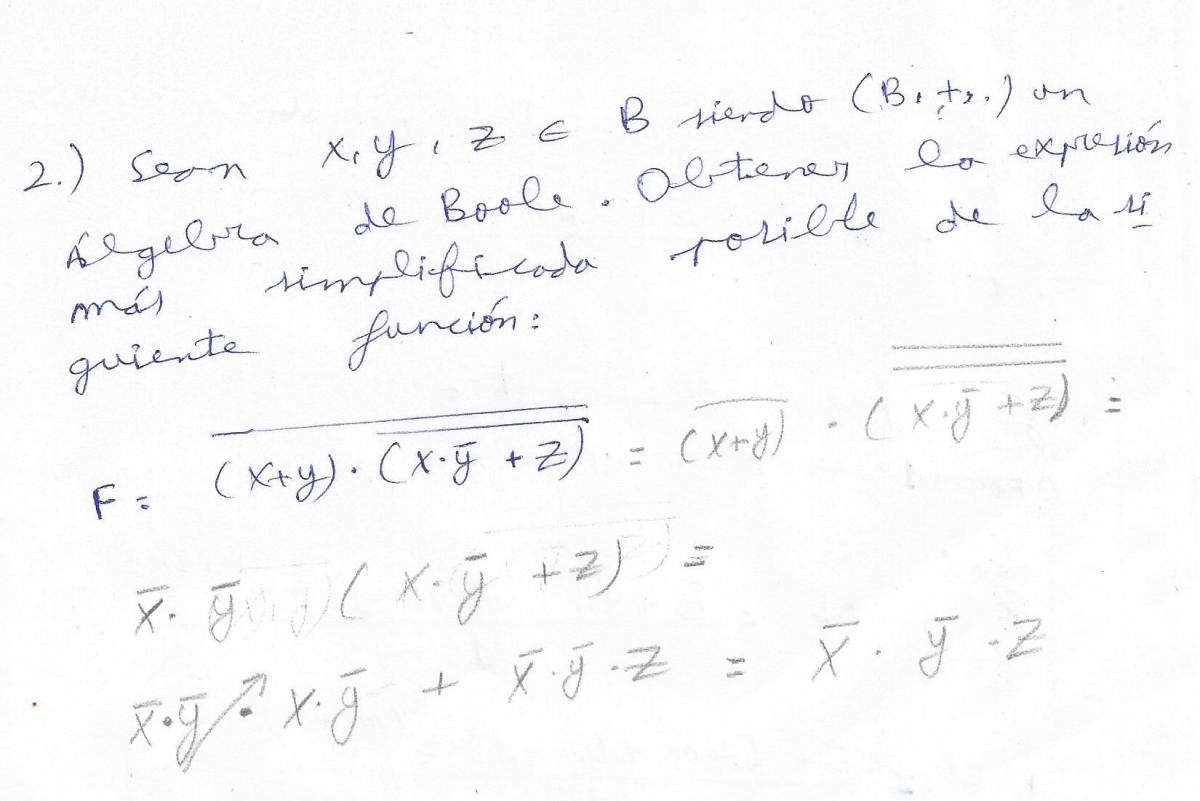 2.) Sean x, y, z ∈ B siendo (B, +, .) un
Álgebra de Boole. Obtener la expresión
más simplificada posible de la si
guiente función:
F = \overline{(x+y)·\overline{(x·\bar{y}+z)}} = \overline{(x+y)}·\overline{\overline{(x·\bar{y}+z)}} =
\bar{x}·\bar{y}(x·\bar{y}+z) =
\bar{x}·\bar{y}·x·\bar{y} + \bar{x}·\bar{y}·z = \bar{x}·\bar{y}·z